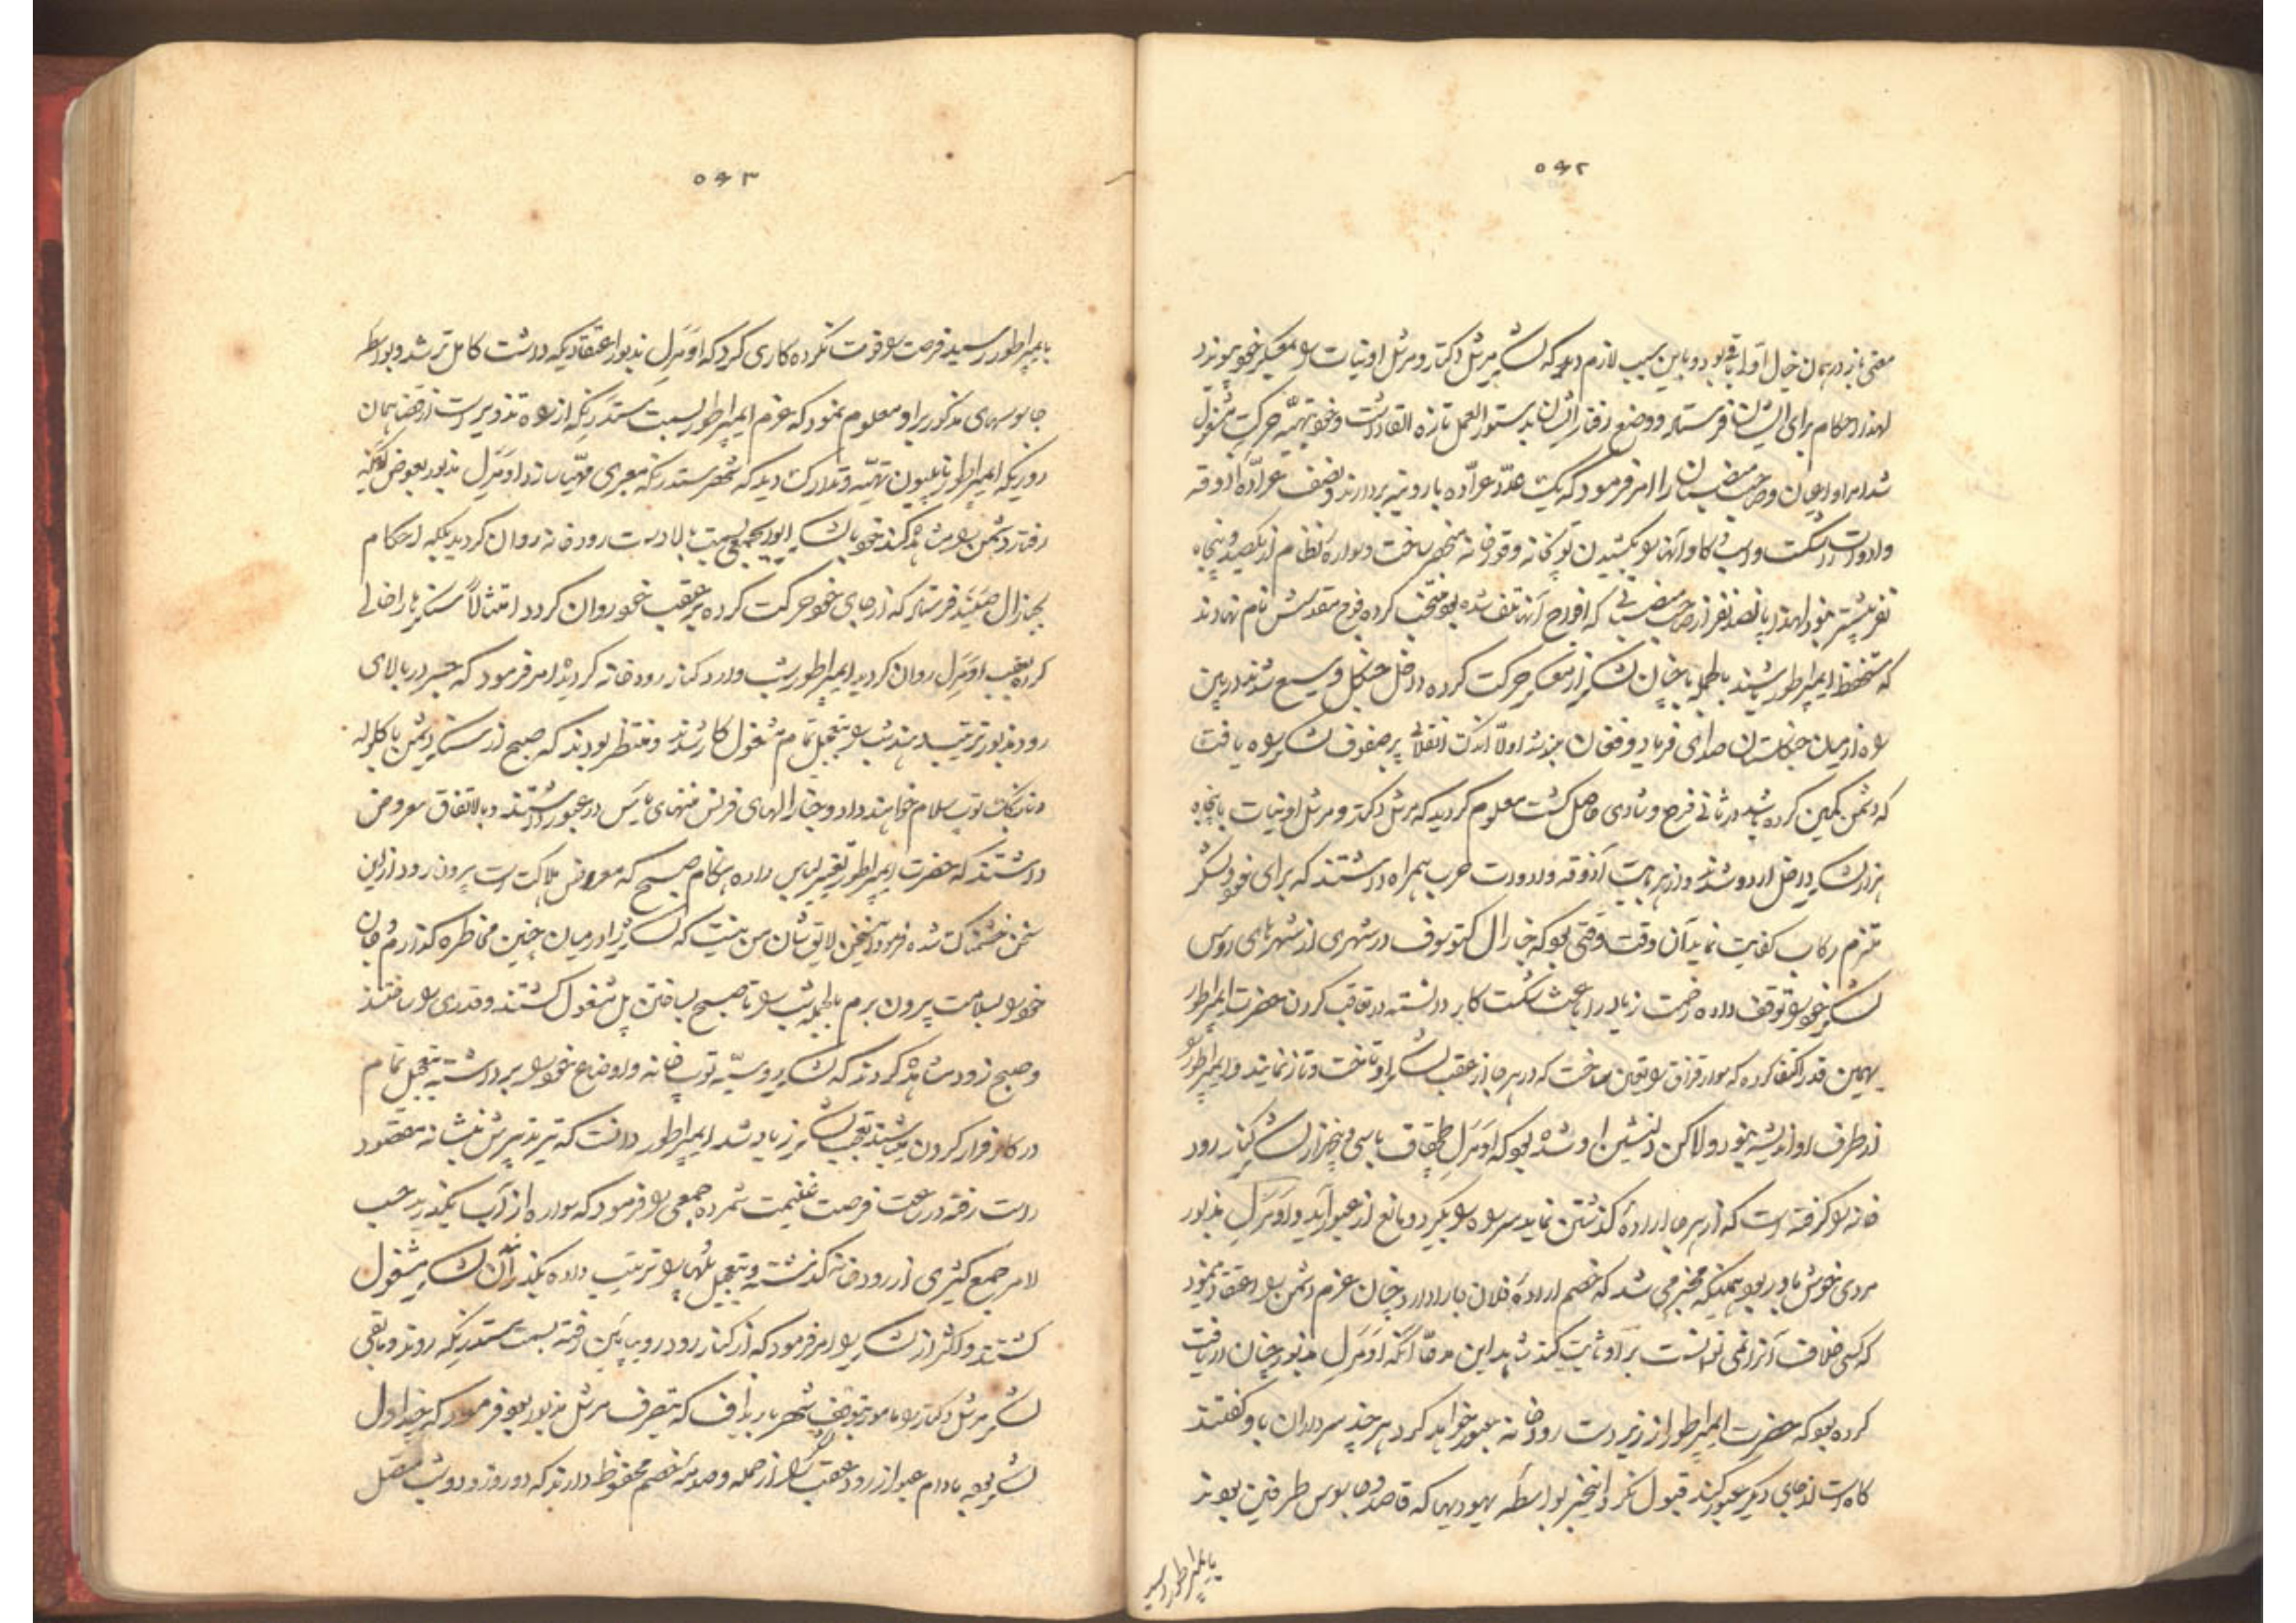 ۵۶۲
معنی باز در همان خیال اولی باقی بود و باین سبب لازم دید که لشکر مرشل دکتار و مرشل اونیات را بمعسکر خود پیوندد
لهذا احکام برای ایشان فرستاد و وضع رفتار ایشان بدستورالعمل تازه القا داشت و خود بتهیه حرکت مشغول
شد امرا و اعیان و صاحب منصبان را امر فرمود که یک عدد عراده بار و بنه بردارند و نصف عراده آذوقه
وادوات را شکست و اسب و گاو آنها را بکشیدن توپخانه و قورخانه منحصر ساخت و سواره نظام از یکصد و پنجاه
نفر بیشتر نبود لهذا پانصد نفر از صاحب منصبانی که افواج آنها تلف شده بود منتخب کرده فوج مقدسش نام نهادند
که مستحفظ ایمپراطور باشند بالجمله با چنان لشکر از معسکر حرکت کرده داخل جنگل وسیع شدند در بین
راه از میان جنگلستان صدای فریاد و فغان بلند شد اولا اندک انقلابی بر صفوف لشکر راه یافت
که دشمن کمین کرده باشد در ثانی فرح و شادی حاصل گشت معلوم گردید که مرشل دکتر و مرشل اونیات با پنجاه
هزار لشکر داخل اردو شدند و از هر بابت آذوقه و ادوات حرب همراه داشتند که برای خود و لشکر
ملتزم رکاب کفایت نماید آن وقت وقتی بود که جنرال کتوسوف در شهری از شهرهای روس
لشکر خود را توقف داده زحمت زیاد را باعث شکست کار دانسته در تعاقب کردن حضرت ایمپراطور
بهمین قدر اکتفا کرده که سوار قزاق را تعیین ساخت که در هر جا از عقب لشکر او تاخت و تاز نمایند و ایمپراطور را
از طرف او اندیشه نبود ولاکن دلنشین او شده بود که اومرل چچقاف با سی و پنجهزار لشکر کنار رود
خانه را گرفته است که از هر جا اراده گذشتن نماید سر راه را بگیرد و مانع از عبور آید و اومرل مذبور
مردی خوش باور بود همینکه مخبر می شد که خصم اراده فلان جا را دارد چنان عزم دشمن را اعتقاد مینمود
که کسی خلاف آنرا نمی توانست بر او ثابت کند شاهد این مدعا آنکه اومرل مذبور چنان دریافت
کرده بود که حضرت ایمپراطور از زیر دست رودخانه عبور خواهد کرد هر چند سرداران باو گفتند
گاه است از جای دیگر عبور کند قبول نکرد اینخبر بواسطه یهودیها که قاصد و جاسوس طرفین بودند
بایمپراطور رسید
۵۶۳
بایمپراطور رسید فرصت را فوت نکرده کاری کرد که اومرل مذبور اعتقادیکه داشت کامل تر شد و بواسطه
جاسوسهای مذکور بر او معلوم نمود که عزم ایمپراطور بسمت ستدرنکه از راه تزویر است از قضا همان
روزیکه ایمپراطور ناپلیون تهیه و تدارک دید که شهر ستدرنکه معبری مهیا سازد اومرل مذبور بعوض آنکه
رفتار دشمن را مشاهده کند خود با لشکر ابوابجمعی بسمت بالا دست رودخانه روان گردید بلکه احکام
بجنرال چپلتد فرستاد که از جای خود حرکت کرده بر عقب خود روان گردد امتثالا سنگرها را خالی
کرده بعقب اومرل روان گردید ایمپراطور شب وارد کنار رودخانه گردید امر فرمود که جسر در بالای
رود مذبور ترتیب دهند شب را بتعجیل تمام مشغول کار شدند و منتظر بودند که صبح از سنگر دشمن با گلوله
و نارنجک توپ سلام خواهند داد و جنرالهای فرنس منتهای یأس در عبور داشتند و بالاتفاق معروض
داشتند که حضرت ایمپراطور تغییر لباس داده هنگام صبح که معرض هلاکت است بیرون رود از این
سخن خشمناک شده فرمود اینسخن لایق شان من نیست که لشکر را در میان چنین مخاطره گذارم و جان
خود را بسلامت بیرون برم بالجمله شب را تا صبح بساختن پل مشغول گشتند و قدری را ساختند
و صبح زود مشاهده کردند که لشکر روسیه توپخانه و اوضاع خود را برداشته بتعجیل تمام
در کار فرار کردن میباشند تعجب لشکر زیاد شد ایمپراطور دانست که تیر تدبیرش بنشانه مقصود
راست رفته در ساعت فرصت غنیمت شمرده جمعی را فرمود که سواره از آب بگذرند حسب
الامر جمع کثیری از رودخانه گذشته و بتعجیل پلها را ترتیب داده بگذرانیدن لشکر مشغول
گشتند و اکثر از لشکر را امر فرمود که از کنار رود رو بپایین رفته بسمت ستدرنکه روند و باقی
لشکر مرشل دکتار را مامور بتوقف شهر باریذاف که بتصرف مرشل مذبور بود فرمود که چنداول
لشکر بوده مادام عبور از رود عقب لشکر را از حمله و صدمه خصم محفوظ دارند که دو روز و دو شب متصل